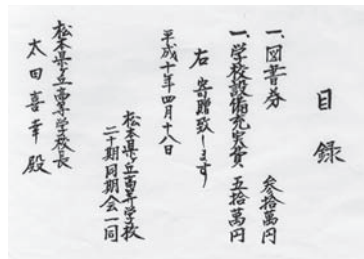 目録
一、図書券 参拾萬円
一、学校設備充実費 五拾萬円
右 寄贈致します
平成十年四月十八日
松本県丘高等学校
二十期同期会一同
松本県丘高等学校長
太田喜幸殿